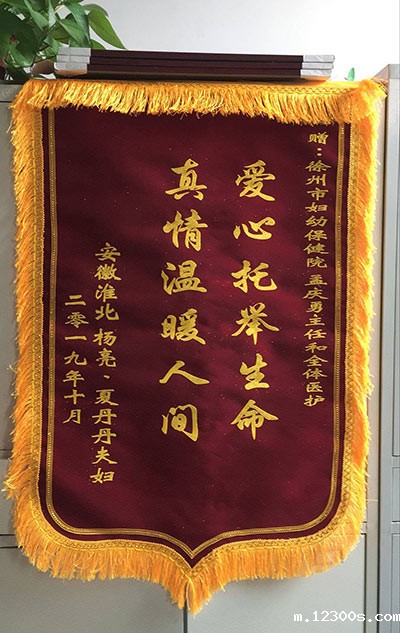 赠：徐州市妇幼保健院 孟庆勇主任和全体医护
爱心托举生命
真情温暖人间
安徽淮北 杨亮、夏丹丹夫妇
二零一九年十月
m.12300s.com